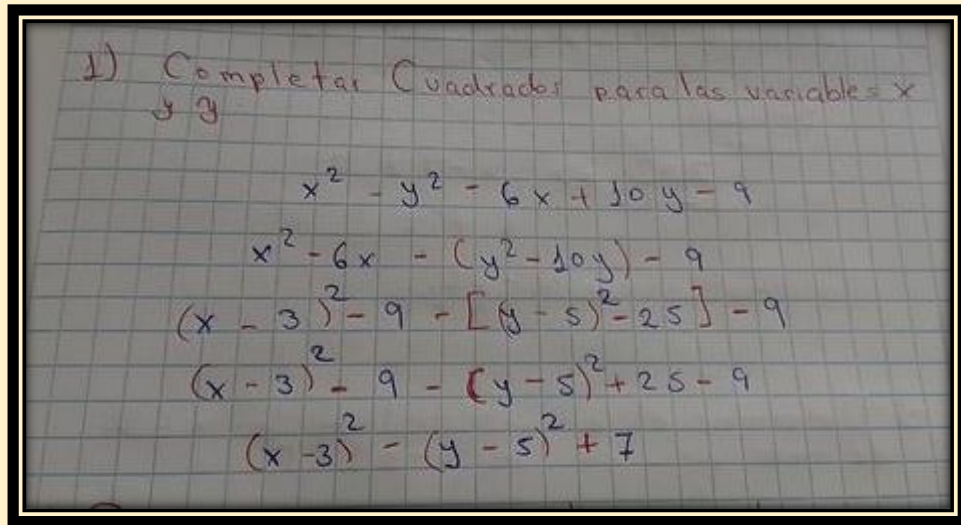 1) Completar Cuadrados para las variables x
y y
x² - y² - 6x + 10y - 9
x² - 6x - (y² - 10y) - 9
(x - 3)² - 9 - [(y - 5)² - 25] - 9
(x - 3)² - 9 - (y - 5)² + 25 - 9
(x - 3)² - (y - 5)² + 7